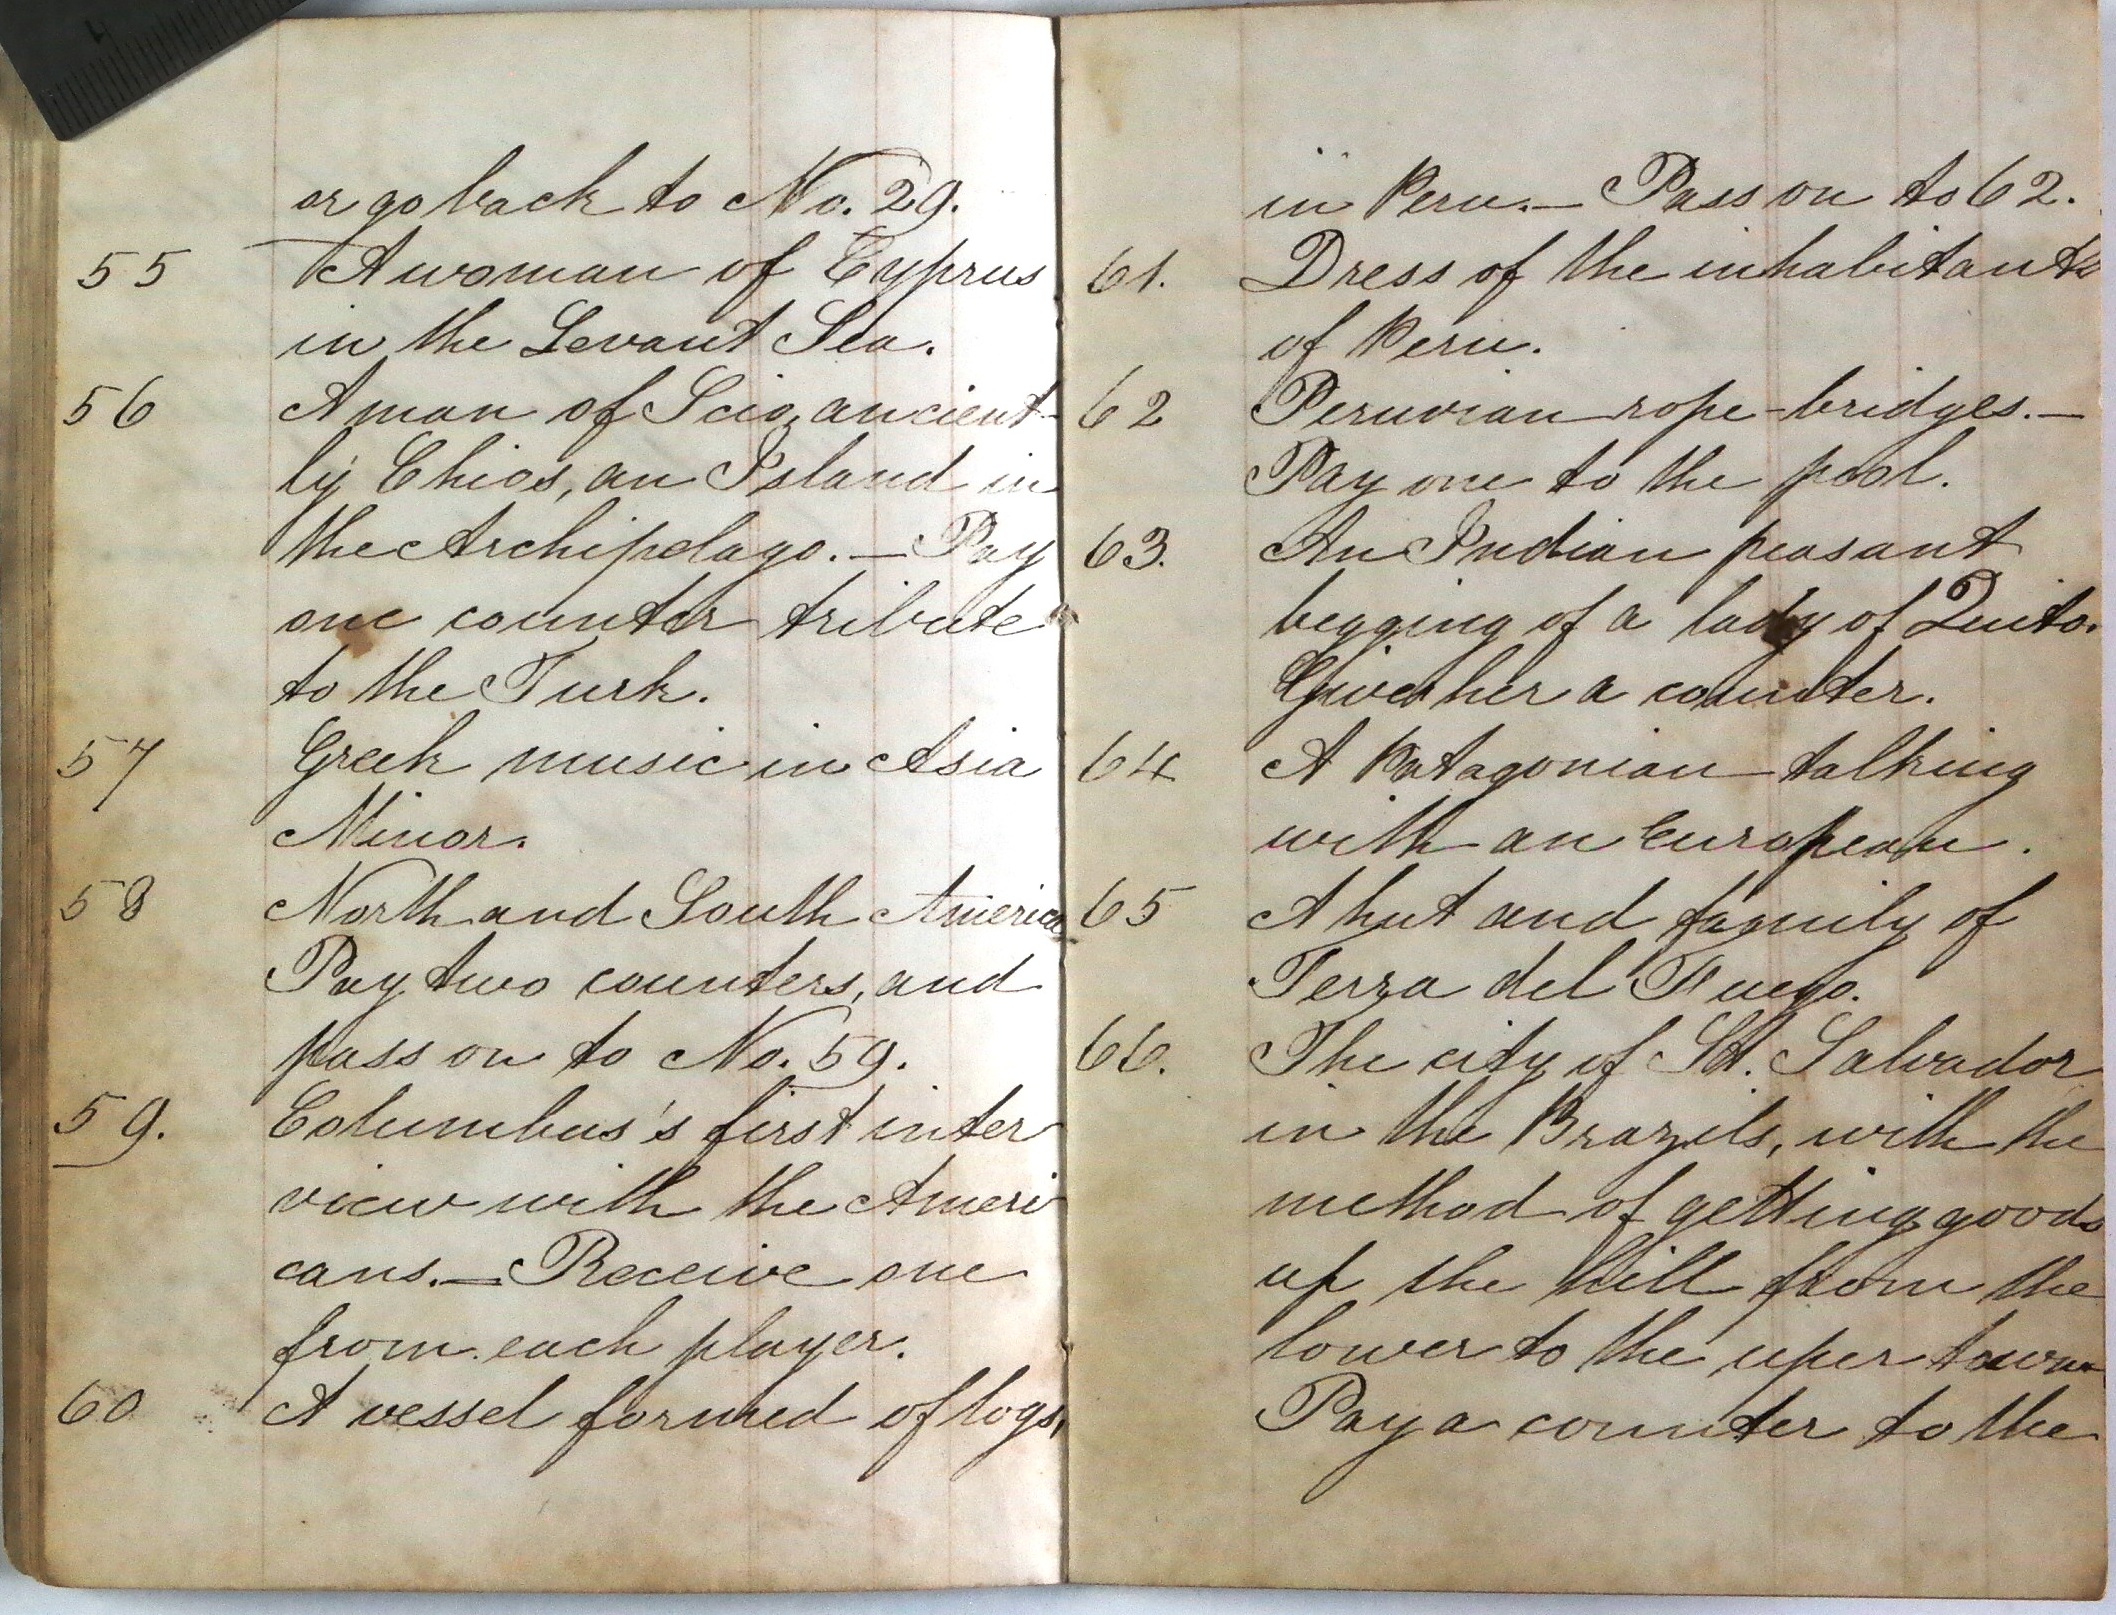 or go back to No. 29.
55 A woman of Cyprus
in the Levant Sea.
56 A man of Scio, ancient-
ly Chios, an Island in
the Archipelago. — Pay
one counter tribute
to the Turk.
57 Greek music in Asia
Minor.
58 North and South America
Pay two counters, and
pass on to No. 59.
59. Columbus's first inter
view with the Ameri
cans. — Receive one
from each player.
60 A vessel formed of logs,
in Peru. — Pass on to 62.
61. Dress of the inhabitants
of Peru.
62 Peruvian rope-bridges. —
Pay one to the pool.
63. An Indian peasant
begging of a lady of Quito.
Give her a counter.
64 A Patagonian talking
with an European.
65 A hut and family of
Terra del Fuego.
66. The city of St. Salvador
in the Brazils, with the
method of getting goods
up the hill from the
lower to the uper town
Pay a counter to the